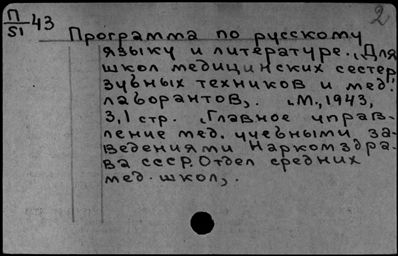 П
51 43
2
Программа по русскому
языку и литературе. (Для
школ медицинских сестер
зубных техников и мед.
лаборантов). (М., 1943,
3,1 стр. (Главное управ-
ление мед. учебными за-
ведениями Наркомздра-
ва СССР. Отдел средних
мед. школ).